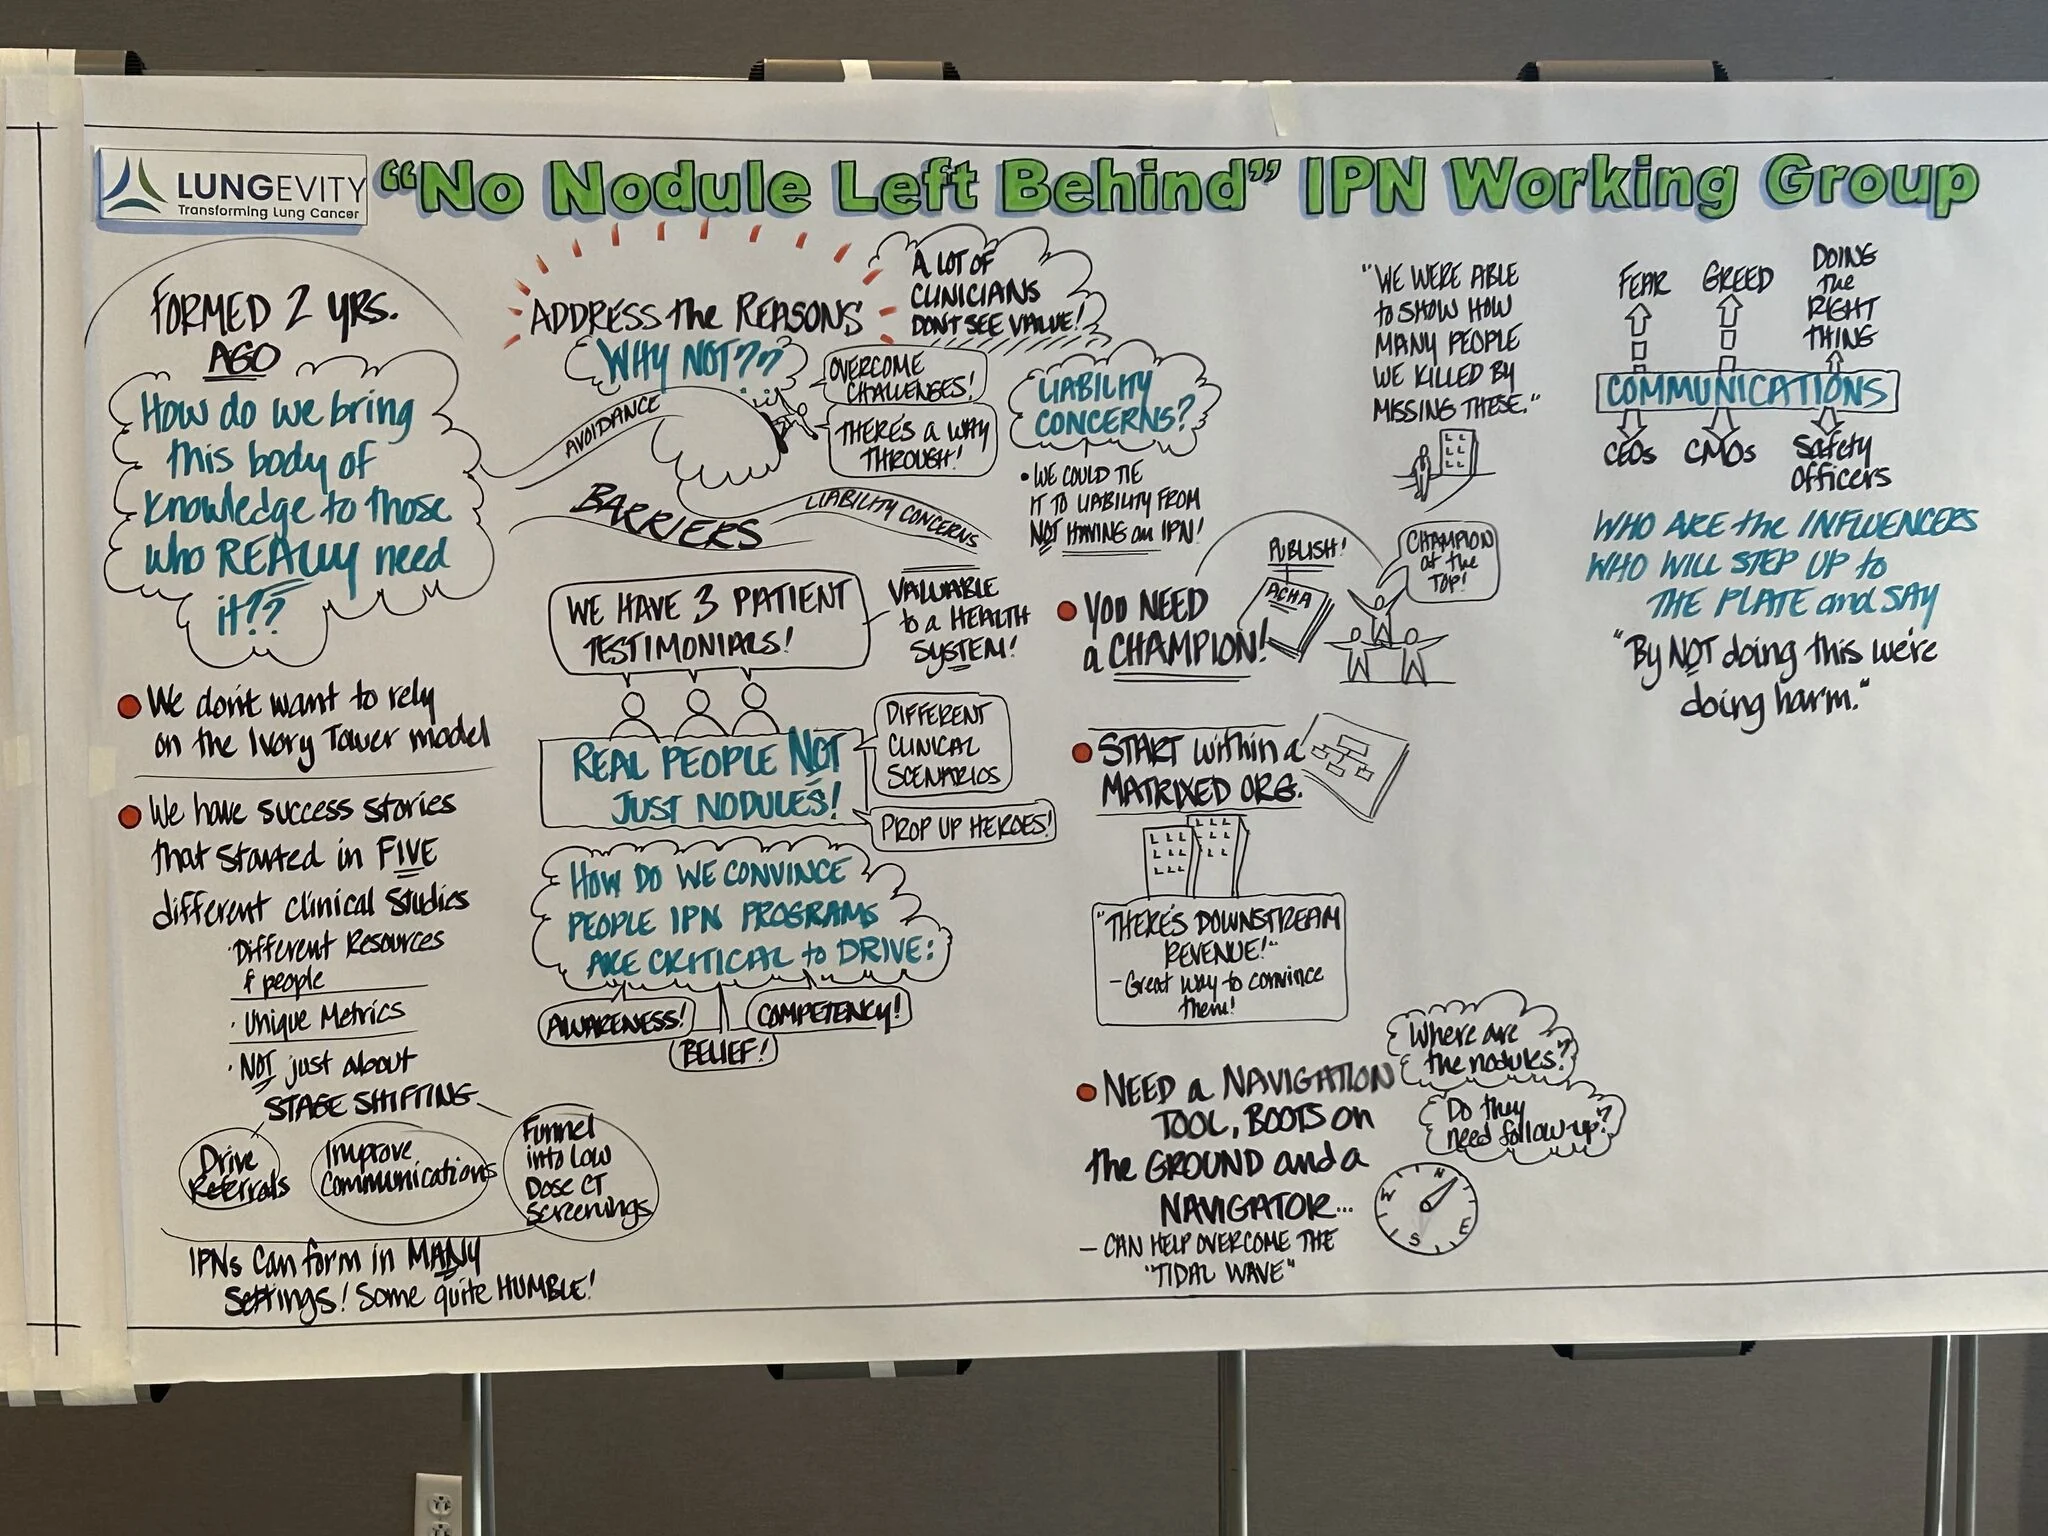 LUNGEVITY
Transforming Lung Cancer
"No Nodule Left Behind" IPN Working Group
FORMED 2 YRS.
AGO
How do we bring
this body of
knowledge to those
who REALLY need
it??
We don't want to rely
on the Ivory Tower model
We have success stories
that started in FIVE
different clinical studies
· Different Resources
& people
· Unique Metrics
· NOT just about
STAGE SHIFTING
Drive
Referrals
Improve
Communications
Funnel
into Low
Dose CT
Screenings
IPNs can form in MANY
Settings! Some quite HUMBLE!
ADDRESS the REASONS
WHY NOT??
A LOT OF
CLINICIANS
DON'T SEE VALUE!
OVERCOME
CHALLENGES!
THERE'S A WAY
THROUGH!
AVOIDANCE
BARRIERS
LIABILITY CONCERNS
LIABILITY
CONCERNS?
• WE COULD TIE
IT TO LIABILITY FROM
NOT HAVING an IPN!
WE HAVE 3 PATIENT
TESTIMONIALS!
VALUABLE
to a HEALTH
SYSTEM!
REAL PEOPLE NOT
JUST NODULES!
DIFFERENT
CLINICAL
SCENARIOS
PROP UP HEROES!
HOW DO WE CONVINCE
PEOPLE IPN PROGRAMS
ARE CRITICAL to DRIVE:
AWARENESS!
BELIEF!
COMPETENCY!
"WE WERE ABLE
to SHOW HOW
MANY PEOPLE
WE KILLED BY
MISSING THESE."
YOU NEED
a CHAMPION!
PUBLISH!
ACHA
CHAMPION
at the
TOP!
START within a
MATRIXED ORG.
"THERE'S DOWNSTREAM
REVENUE!"
- Great way to convince
them!
NEED a NAVIGATION
TOOL, BOOTS on
the GROUND and a
NAVIGATOR...
- CAN HELP OVERCOME THE
"TIDAL WAVE"
Where are
the nodules?
Do they
need follow-up?
N
E
S
W
FEAR
GREED
DOING
the
RIGHT
THING
COMMUNICATIONS
CEOs
CMOs
Safety
Officers
WHO ARE the INFLUENCERS
WHO WILL STEP UP to
THE PLATE and SAY
"By NOT doing this we're
doing harm."